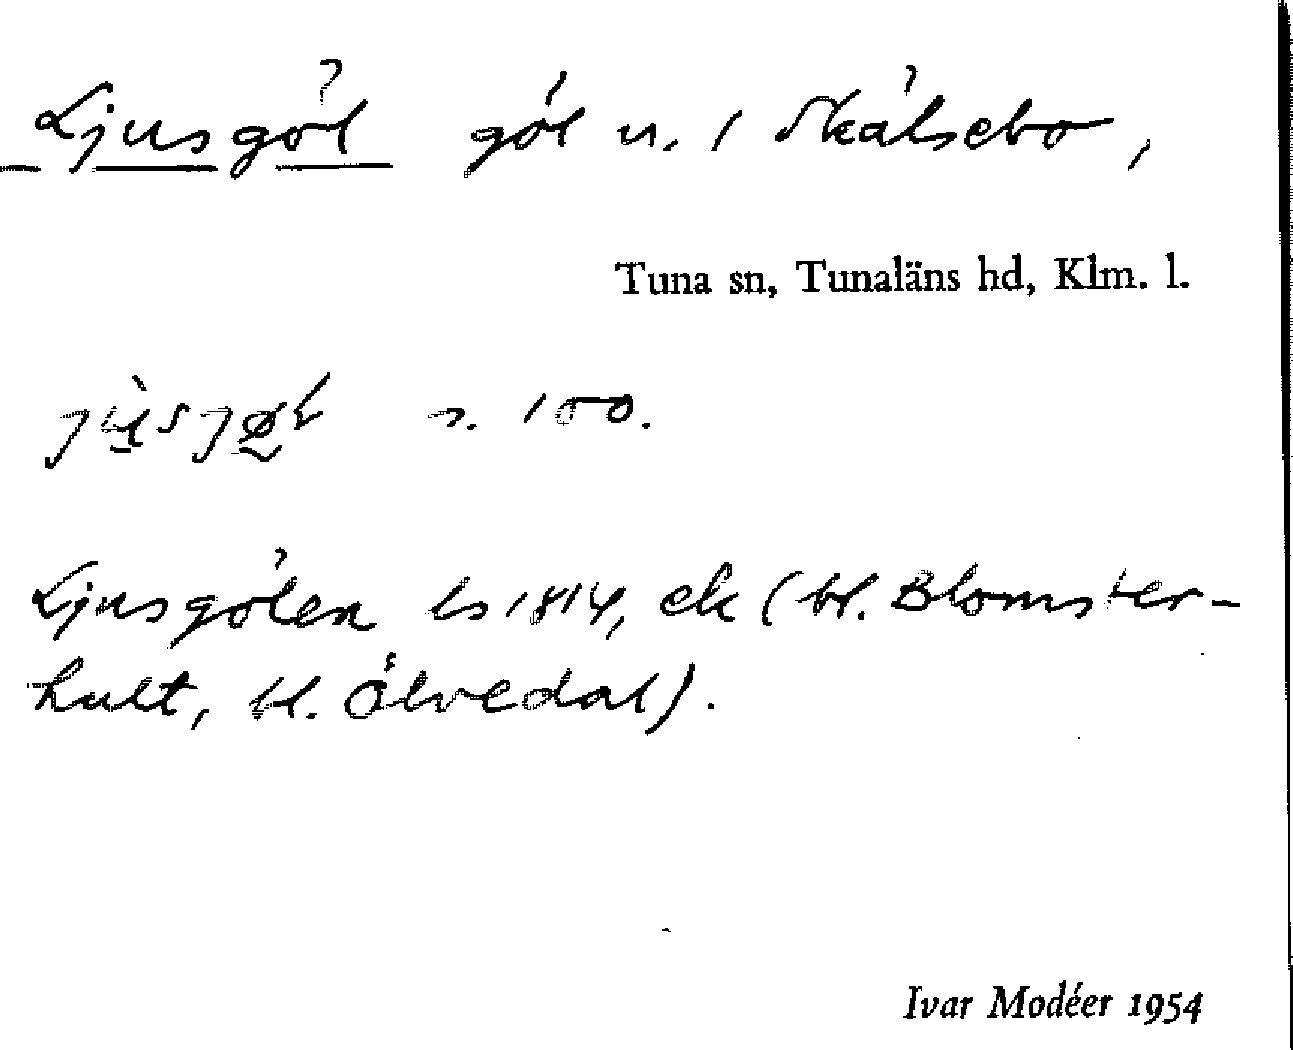 Ljusgöl göl n. / Skälsebo,
Tuna sn, Tunaläns hd, Klm. l.
n. 100.
Ljusgölen ls 1814, ek (bl. Blomster-
hult, bl. Ölvedal).
Ivar Modéer 1954